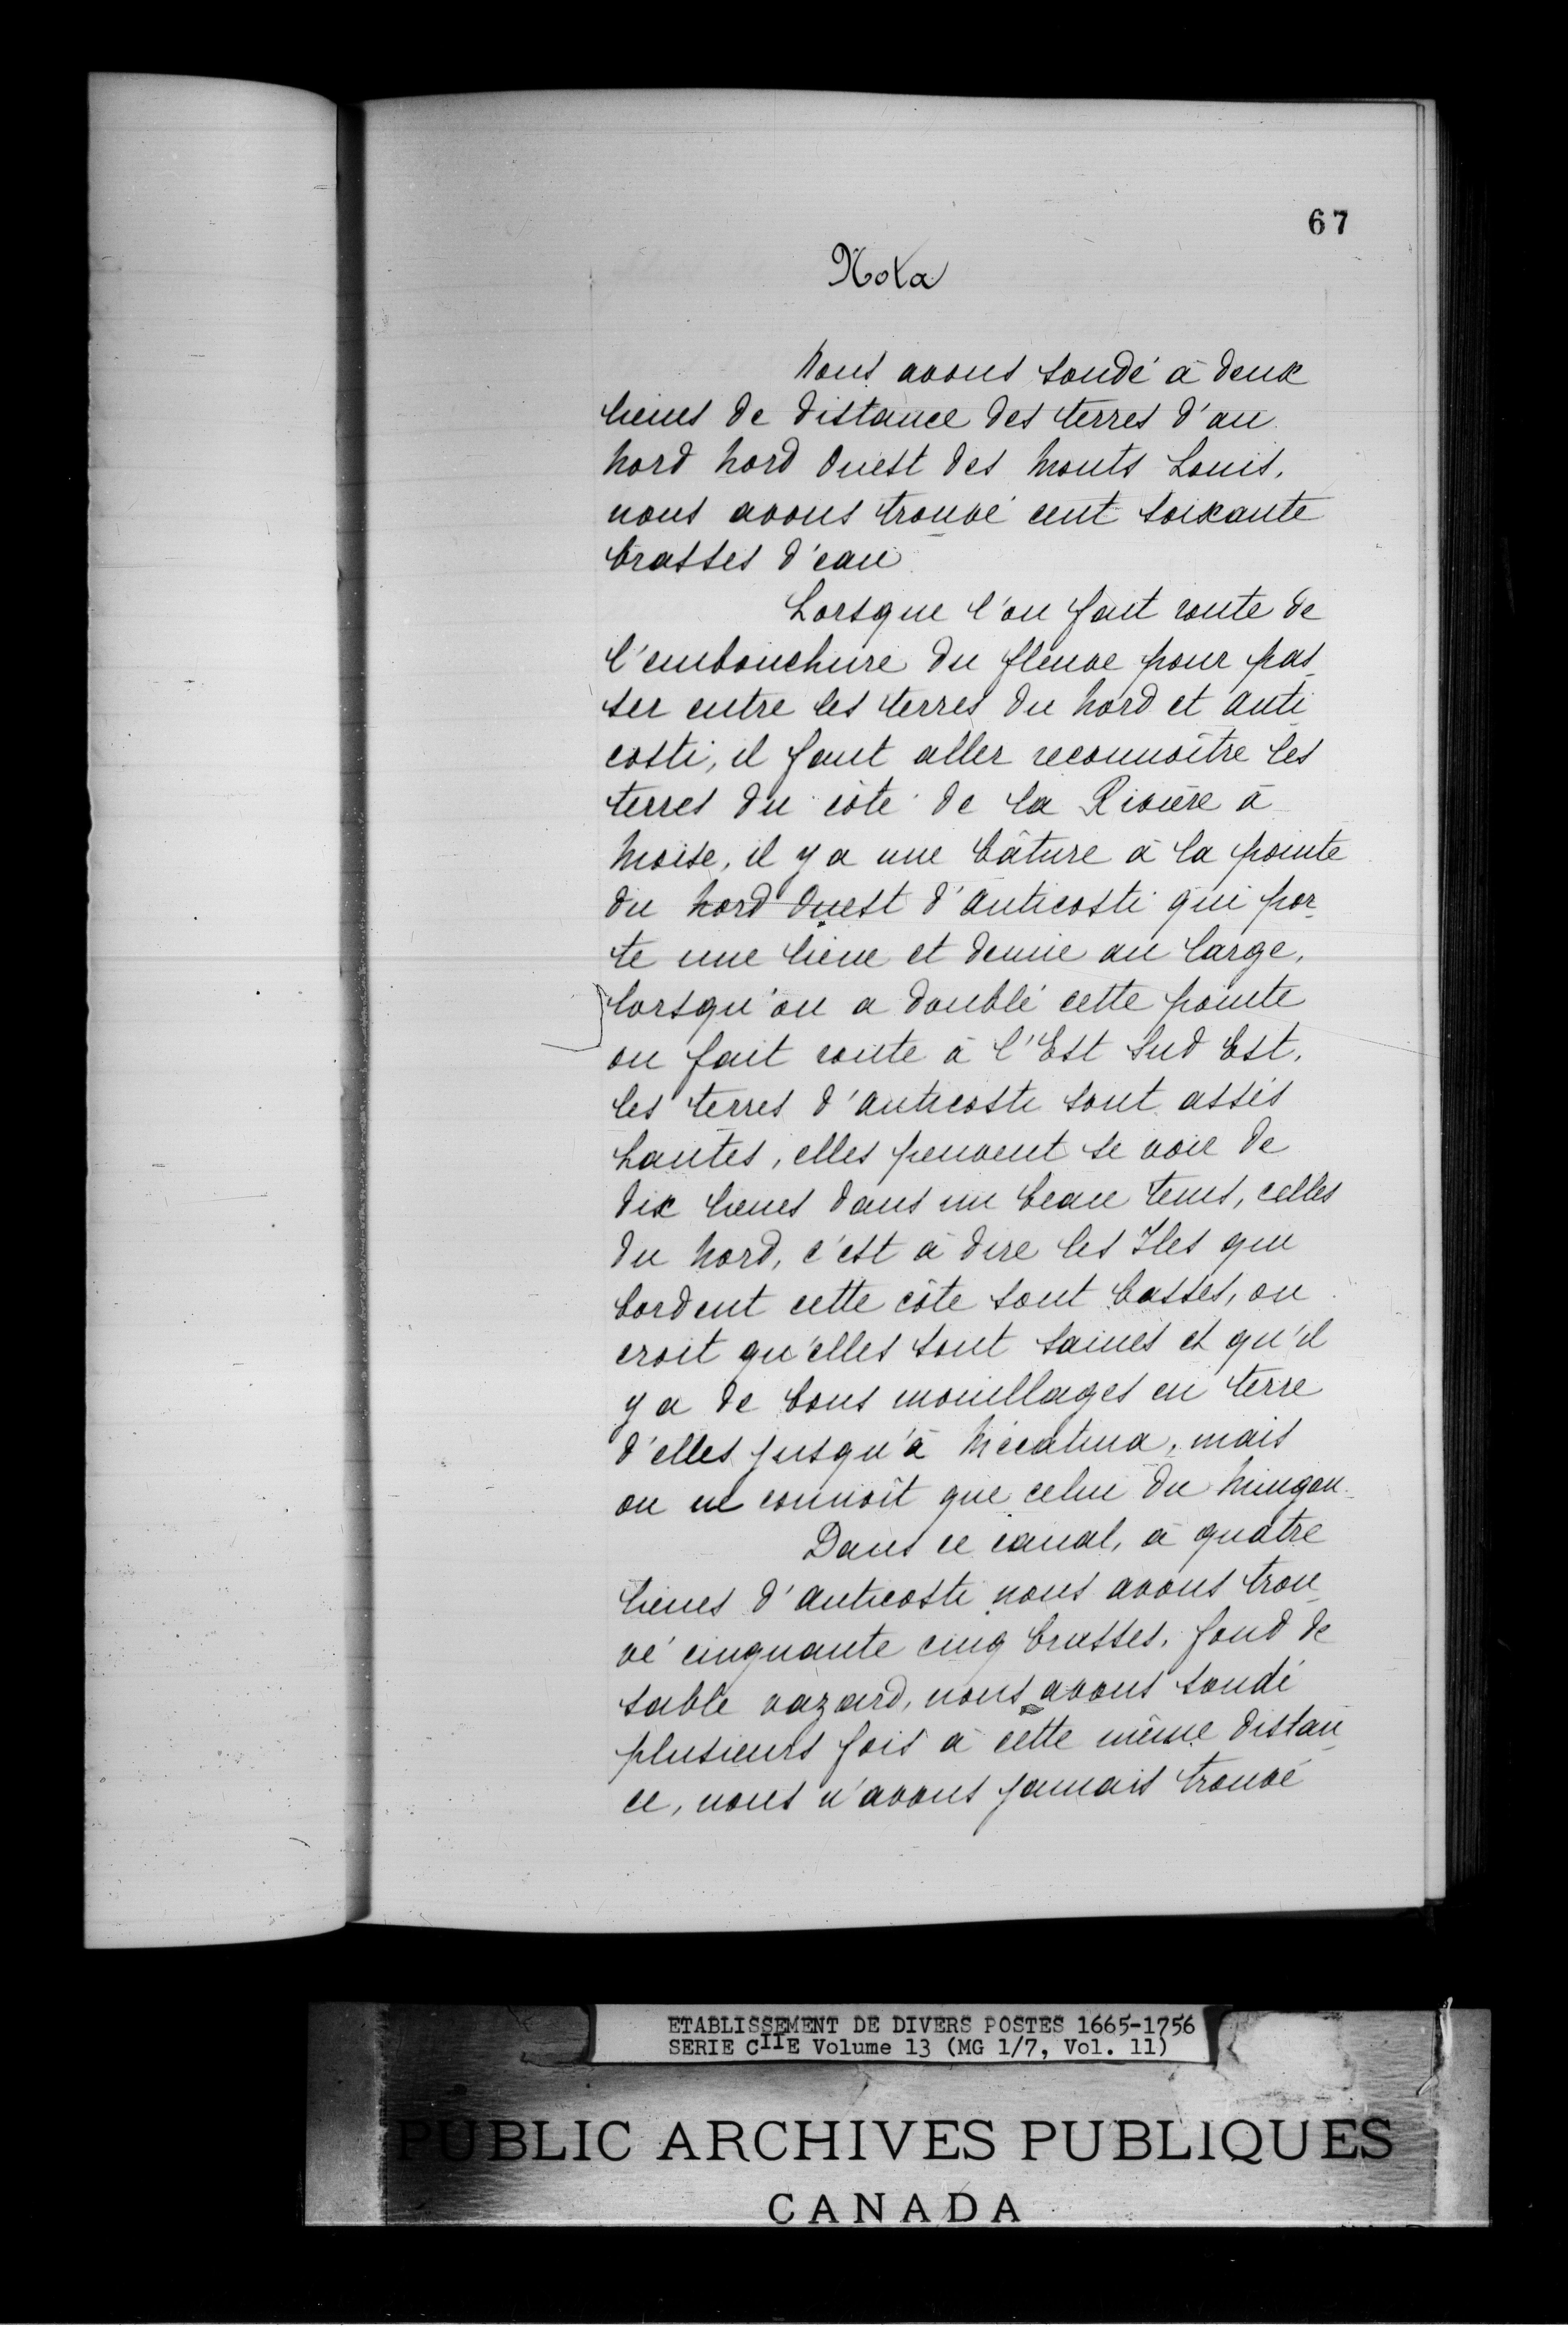 67
Nota
Nous avons sondé à deux
lieues de distance des terres d'au
Nord Nord Ouest des Monts Louis,
nous avons trouvé cent soixante
brasses d'eau
Lorsque l'on fait route de
l'embouchure du fleuve pour pas_
ser entre les terres du Nord et Anti_
costi, il faut aller reconnoître les
terres du côté de la Rivière à
Moise, il y a une bâture à la pointe
du Nord Ouest d'Anticosti qui por_
te une lieue et demie au large,
lorsqu'on a doublé cette pointe
on fait route à l'Est Sud Est,
les terres d'Anticosti sont assés
hautes, elles peuvent se voir de
dix lieues dans un beau tems, celles
du Nord, c'est à dire les Iles qui
bordent cette côte sont basses, on
croit qu'elles sont saines et qu'il
y a de bons mouillages en terre
d'elles jusqu'à Mécatina, mais
on ne connoît que celui du Mingan.
Dans ce canal, à quatre
lieues d'Anticosti nous avons trou_
vé cinquante cinq brasses, fond de
sable vazard, nous avons sondé
plusieurs fois à cette même distan_
ce, nous n'avons jamais trouvé
ETABLISSEMENT DE DIVERS POSTES 1665-1756
SERIE CIIE Volume 13 (MG 1/7, Vol. 11)
PUBLIC ARCHIVES PUBLIQUES
CANADA